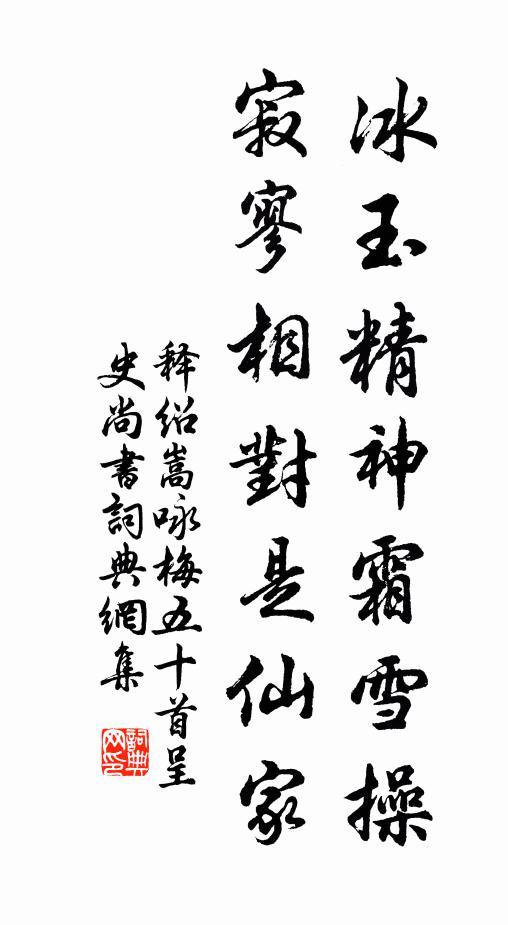 冰玉精神霜雪操
寂寥相對是仙家
释绍嵩咏梅五十首呈
史尚書詞典網集
詞典
网印